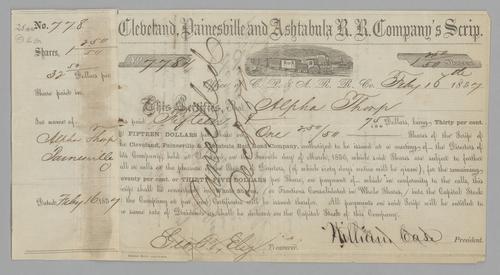 No. 778
Shares, 1 50/50
32 50 Dollars per
Share paid in
In name of
Alpha Thorp
Painesville
Dated, Feby 16 1857
Cleveland, Painesville and Ashtabula R. R. Company's Scrip.
No. 778
Shares.
Office of C. P. & A. R. R. Co. Feby 16th 1857
This Certifies, That Alpha Thorp
has paid Fifteen & 75/100 Dollars, being Thirty per cent.
or FIFTEEN DOLLARS One Shares of the Scrip of
the Cleveland, Painesville & Ashtabula Rail Road Company, authorized to be issued at a meeting of the Directors
this Company, held at on the eleventh day of March, 1856, which Shares are subject to further
calls at the pleasure of the Directors, (of which sixty days notice will be given), for the remaining
seventy per cent. or THIRTY FIVE DOLLARS per Share, on payment of which in conformity to the calls, this
Scrip shall be Fractions Consolidated in Whole Shares, into the Capital Stock
of the Company, and Certificates will be issued therefor. All payments on said Scrip will be entitled to
the same rate of Dividends as shall be declared on the Capital Stock of this Company.
Geo. B. Ely, Treasurer.
William Case President